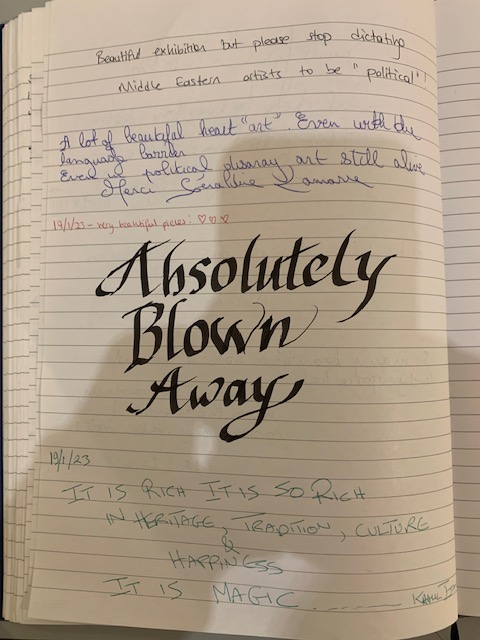 Beautiful exhibition but please stop dictating
Middle Eastern artists to be "political"!
A lot of beautiful heart "art". Even with the
language barrier
Even in political disarray art still alive
Merci Geraldine
19/1/23 - very beautiful pieces! ♡♡♡
Absolutely
Blown
Away
19/1/23
IT IS RICH IT IS SO RICH
IN HERITAGE, TRADITION, CULTURE
&
HAPPINESS
IT IS MAGIC